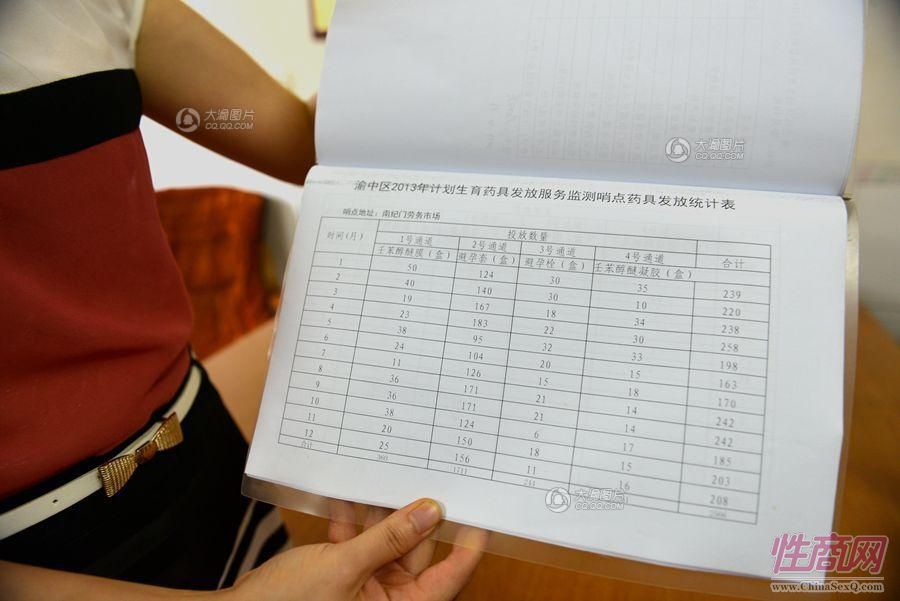 大渝图片
CQ.QQ.COM
大渝图片
CQ.QQ.COM
渝中区2013年计划生育药具发放服务监测哨点药具发放统计表
哨点地址：南纪门劳务市场
时间(月) 投放数量 合计
1号通道 2号通道 3号通道 4号通道
壬苯醇醚膜(盒) 避孕套(盒) 避孕栓(盒) 壬苯醇醚凝胶(盒)
1 50 124 30 35 239
2 40 140 30 10 220
3 19 167 18 34 238
4 23 183 22 30 258
5 38 95 32 33 198
6 24 104 20 15 163
7 11 126 15 18 170
8 36 171 21 14 242
9 36 171 21 14 242
10 38 124 6 17 185
11 20 150 18 15 203
12 25 156 11 16 208
合计 360 1711 244 2566
大渝图片
CQ.QQ.COM
性商网
www.ChinaSexQ.com